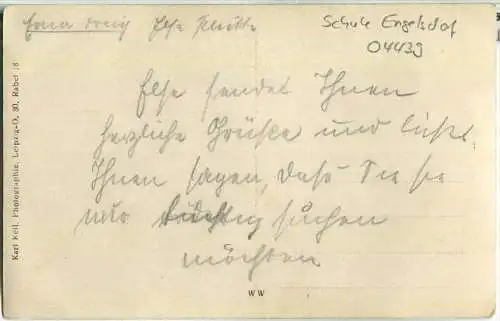 Schule Engelsdorf
04439
Else sendet Ihnen
herzliche Grüße und lässt
Ihnen sagen, dass Sie sie
nur tüchtig suchen
möchten
Karl Keil, Photographie, Leipzig-O, 30, Rabet 18
WW